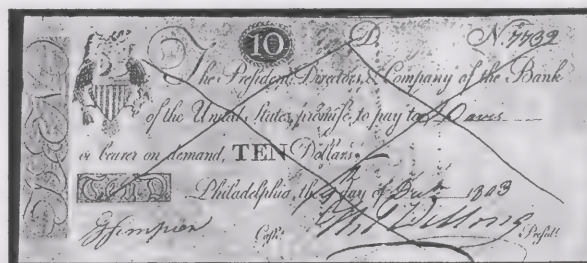 10 D. No. 7739
The President, Directors & Company of the Bank
of the United States, promise to pay to Davis
or bearer on demand, TEN Dollars.
TEN Philadelphia, the day of July 1803
G Simpson Cash. Tho. Willing Presidt.